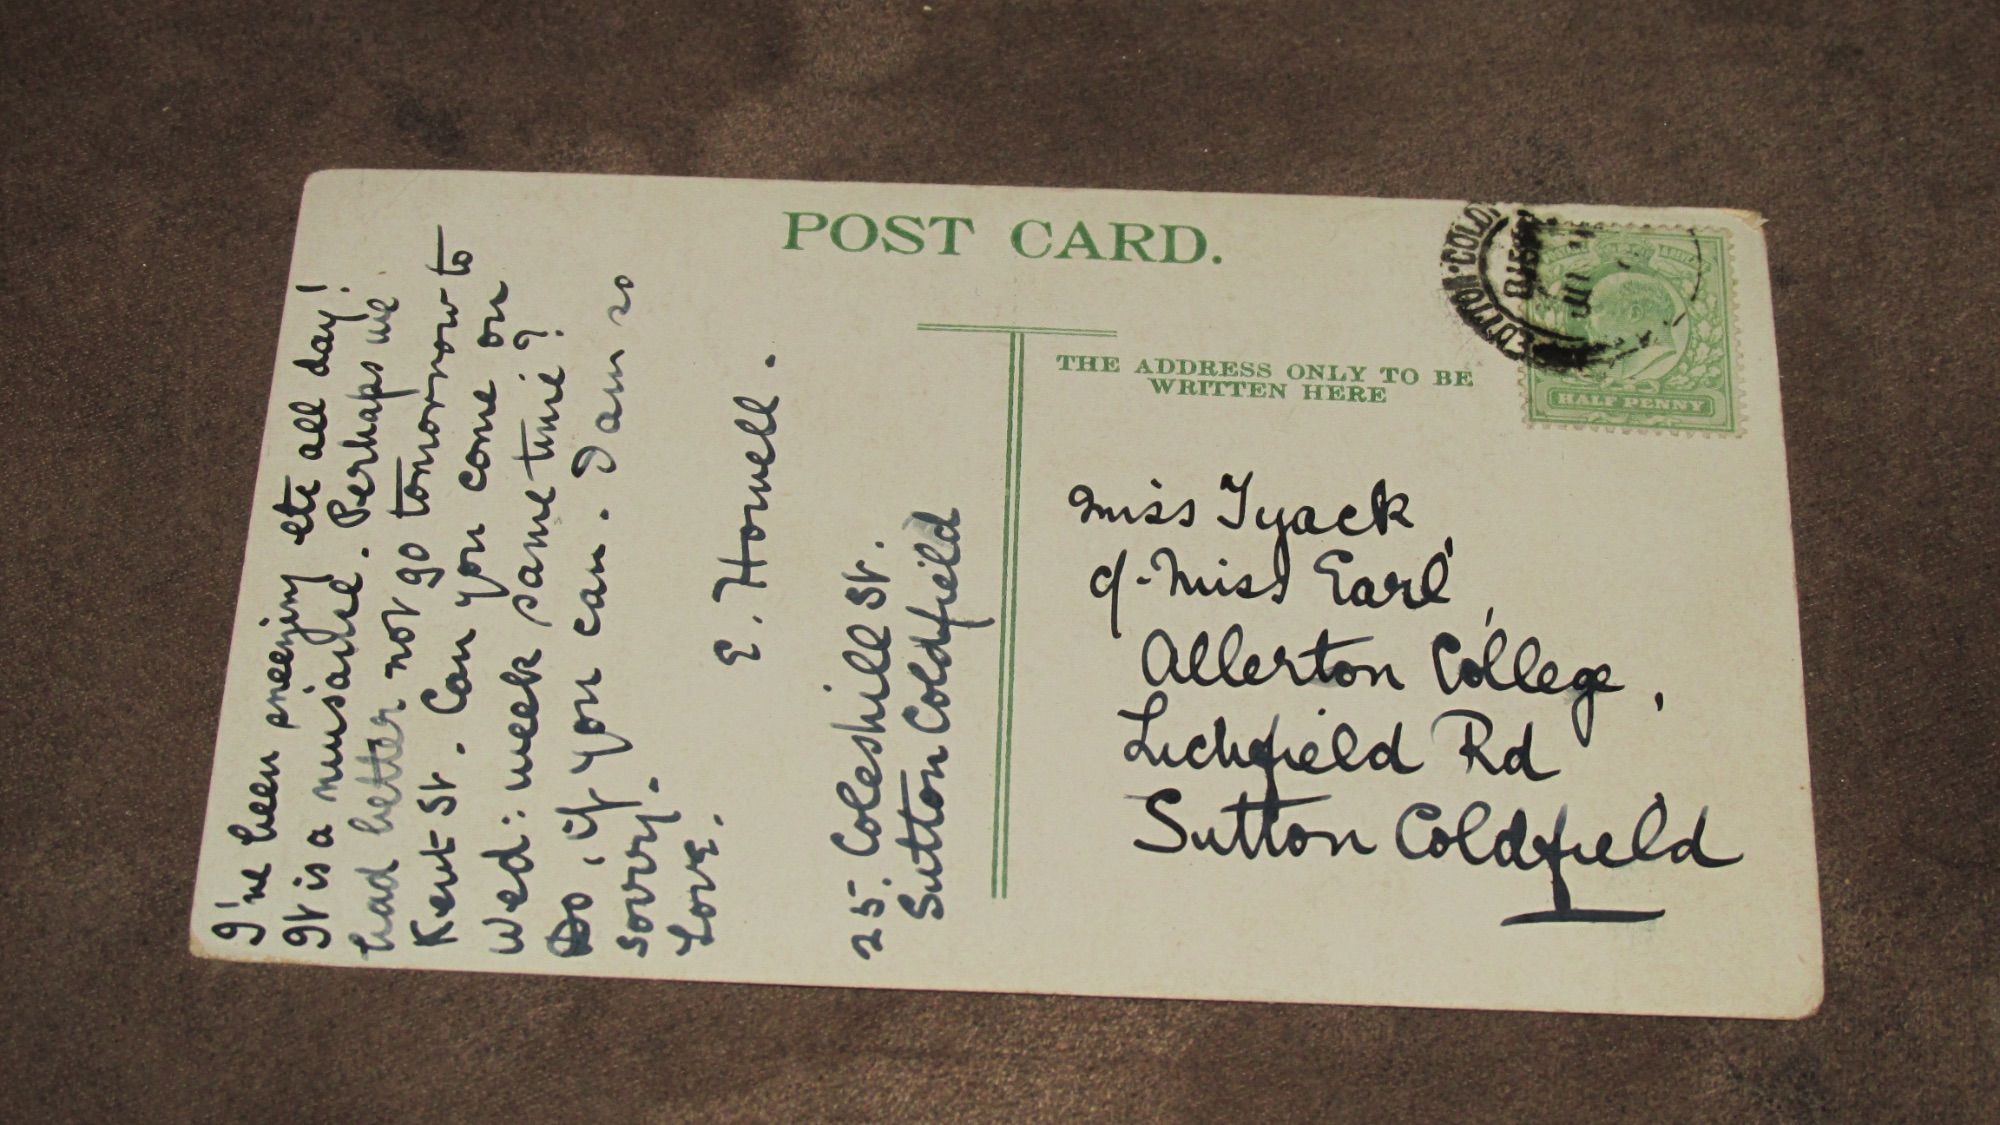 POST CARD.
THE ADDRESS ONLY TO BE
WRITTEN HERE
HALF PENNY
I've been sneezing etc all day!
It is a nuisance. Perhaps we
had better not go tomorrow to
Kent St. Can you come on
Wed: week same time?
Do, if you can. I am so
sorry.
Love.
E. Howell.
25. Coleshill St.
Sutton Coldfield
Miss Tyack,
c/- Miss Earl,
Allerton College,
Lichfield Rd
Sutton Coldfield